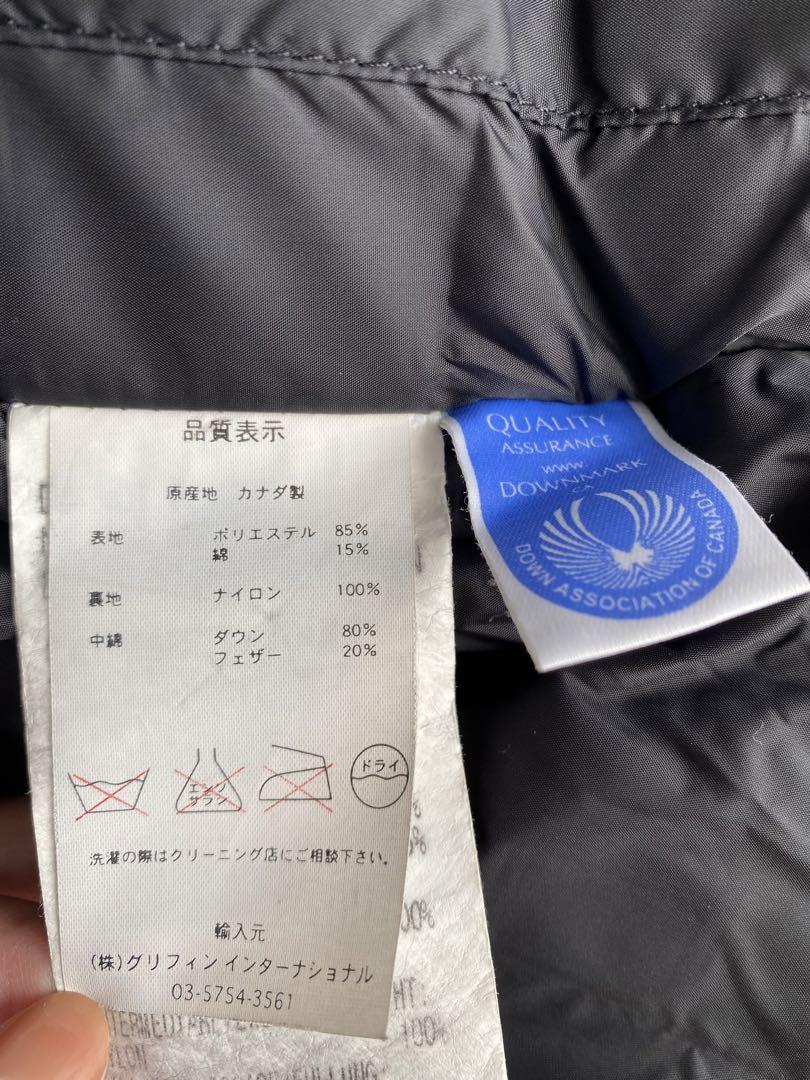 品質表示
原産地 カナダ製
表地 ポリエステル 85%
綿 15%
裏地 ナイロン 100%
中綿 ダウン 80%
フェザー 20%
エンソ
サラシ
ドライ
洗濯の際はクリーニング店にご相談下さい。
輸入元
(株)グリフィン インターナショナル
03-5754-3561
QUALITY
ASSURANCE
www
DOWNMARK
CA
DOWN ASSOCIATION OF CANADA
100%